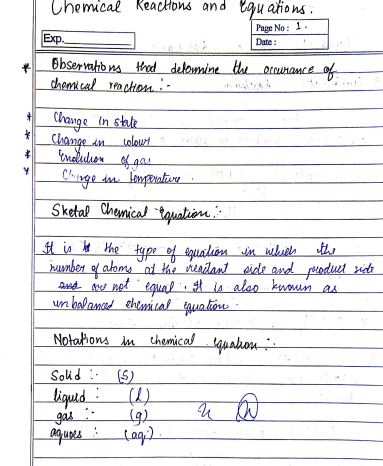 Chemical Reactions and Equations.
Page No : 1.
Exp.
Date :
* Observations that determine the occurance of
chemical reaction :-
* Change in state
* Change in colour
* Evolution of gas
* Change in temperature.
Sketal Chemical Equation :-
It is the type of equation in which the
number of atoms at the reactant side and product side
are not equal. It is also known as
unbalanced chemical equation.
Notations in chemical equation :-
Solid :- (s)
liquid :- (l)
gas :- (g)
aquoes : (aq.)